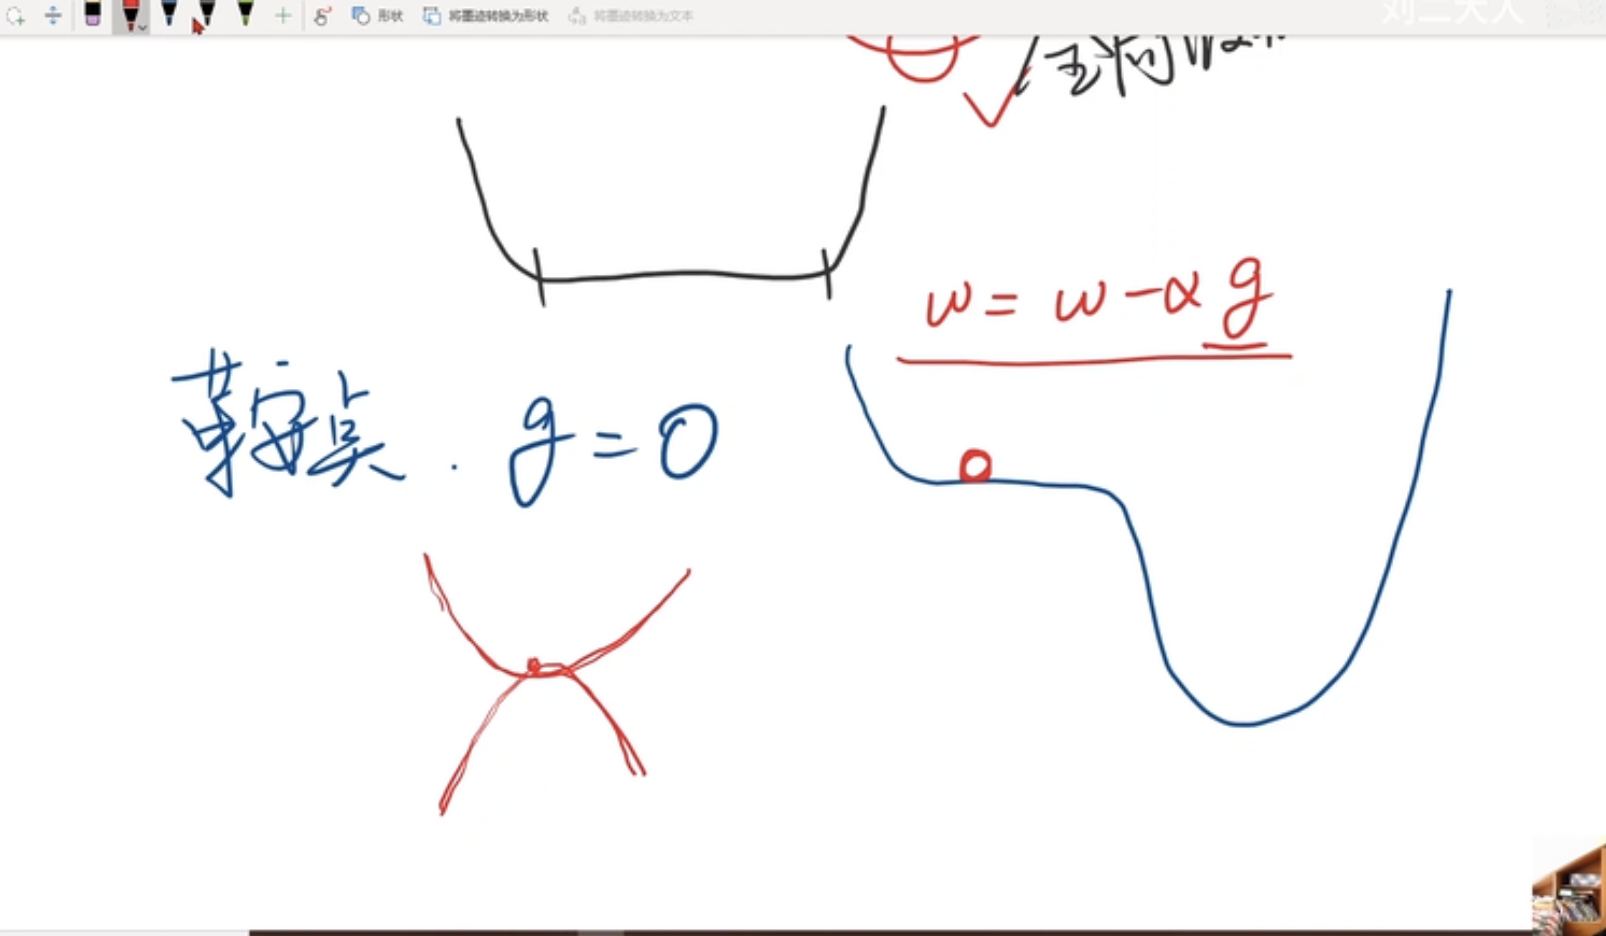 形状 将墨迹转换为形状 将墨迹转换为文本
刘二大人
w = w - α g
鞍点. g = 0